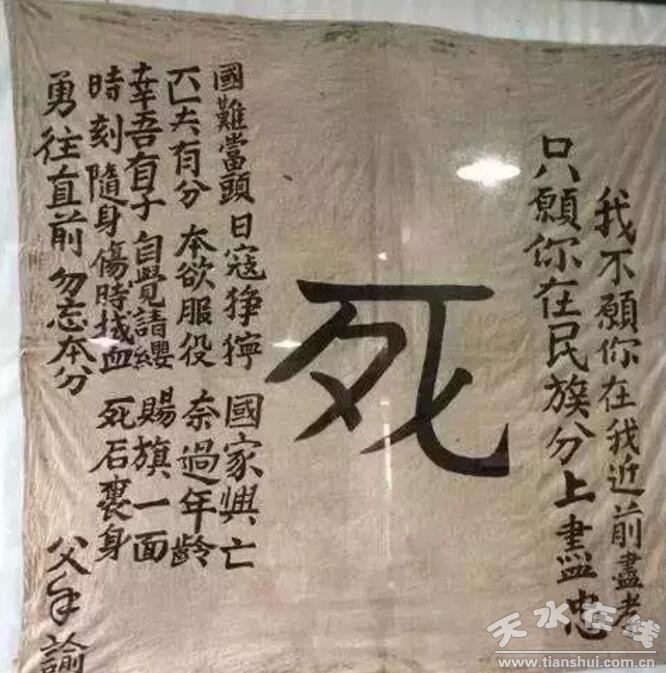 我不願你在我近前盡孝
只願你在民族分上盡忠
死
國難當頭 日寇猙獰 國家興亡
匹夫有分 本欲服役 奈過年齡
幸吾有子 自覺請纓 賜旗一面
時刻隨身 傷時拭血 死后裹身
勇往直前 勿忘本分
父手諭
天水在线
www.tianshui.com.cn